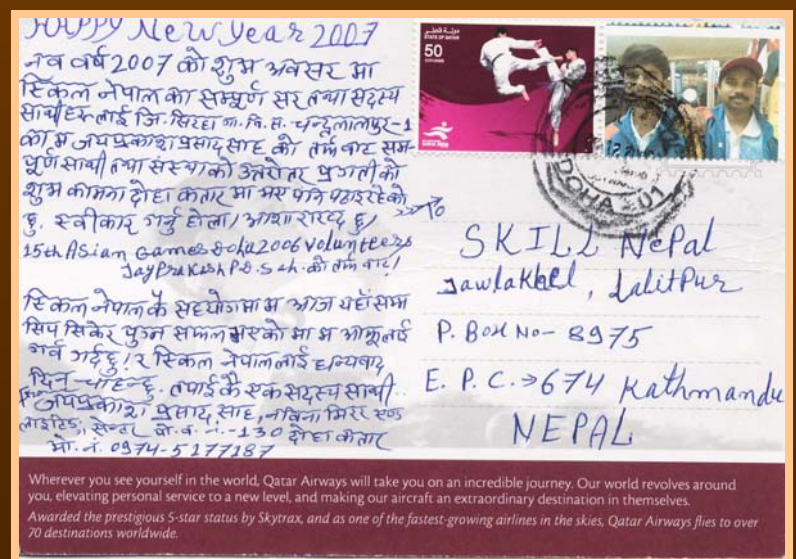 HAPPY New Year 2007
नव वर्ष 2007 को शुभ अवसर मा
स्किल नेपाल का सम्पूर्ण सर तथा सदस्य
साथीहरू लाई जि. सिरहा गा. वि. स. चन्द्रलालपुर-1
का म जयप्रकाश प्रसाद साह को तर्फ बाट सम-
पूर्ण साथी तथा संस्थाको उत्तरोतर प्रगती को
शुभ कामना दोहा कतार मा भए पनि पठाइरहेको
छु. स्वीकार गर्नु होला। आशा राख्द छु।
15th ASian Games Doha 2006 Volunteers
Jay Prakash P.D. Sah. को तर्फ बाट।
स्किल नेपाल कै सहयोगमा म आज यहाँ सम्म
सिप सिकेर पुग्न सफल भएको मा म आफूलाई
गर्व गर्दछु। र स्किल नेपाललाई धन्यवाद
दिन चाहन्छु. तपाई कै एक सदस्य साथी..
From जयप्रकाश प्रसाद साह,
लाइटिङ, सेन्टर पो. ब. नं.-130 दोहा कतार
मो. नं. 0974-5177187
دولة قطر
STATE OF QATAR
50
DOHA-01
To
SKILL Nepal
Jawlakhel, Lalitpur
P. BOX No- 8975
E. P. C. → 674 Kathmandu
NEPAL
Wherever you see yourself in the world, Qatar Airways will take you on an incredible journey. Our world revolves around
you, elevating personal service to a new level, and making our aircraft an extraordinary destination in themselves.
Awarded the prestigious 5-star status by Skytrax, and as one of the fastest-growing airlines in the skies, Qatar Airways flies to over
70 destinations worldwide.